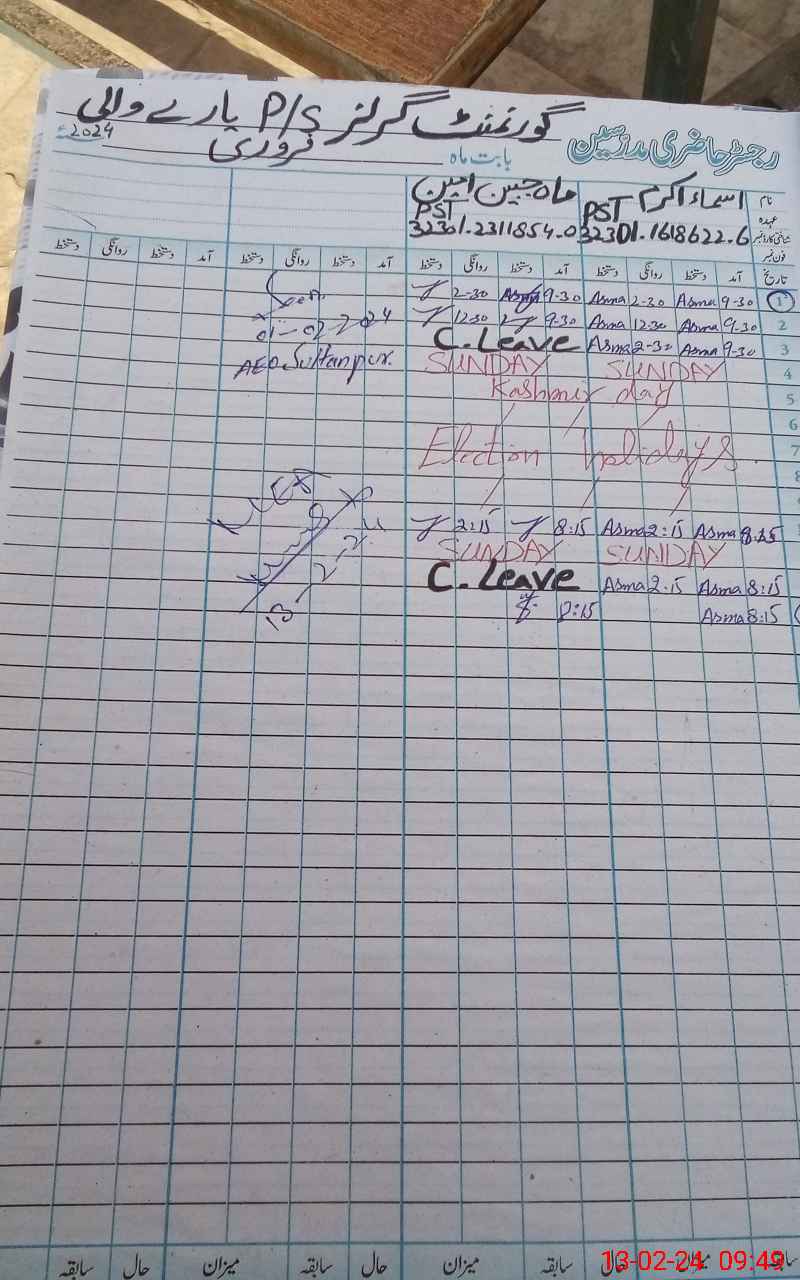 گورنمنٹ گرلز P/S پارے والی
رجسٹر حاضری مدرسین
بابت ماہ فروری 2024ء
نام اسماء اکرم ماہ جبین امین
عہدہ PST PST
شناختی کارڈ نمبر 32301.1618622.6 32301.2311854.0
فون نمبر
تاریخ آمد دستخط روانگی دستخط آمد دستخط روانگی دستخط آمد دستخط روانگی دستخط آمد دستخط روانگی دستخط
1 9-30 Asma 2-30 Asma 9-30 2-30
2 9-30 Asma 12-30 Asma 9-30 12-30
01-02-2024
3 9-30 Asma 2-30 Asma C. Leave
AEO Sultanpur.
4 SUNDAY SUNDAY
5 Kashmir day
6
7 Election holidays
8:15 Asma 2:15 Asma 8:15 2:15
SUNDAY SUNDAY
8:15 Asma 2.15 Asma C. Leave
8:15 Asma 8:15
13-2-24
سابقہ میزان حال سابقہ میزان حال سابقہ میزان حال سابقہ
13-02-24 09:49